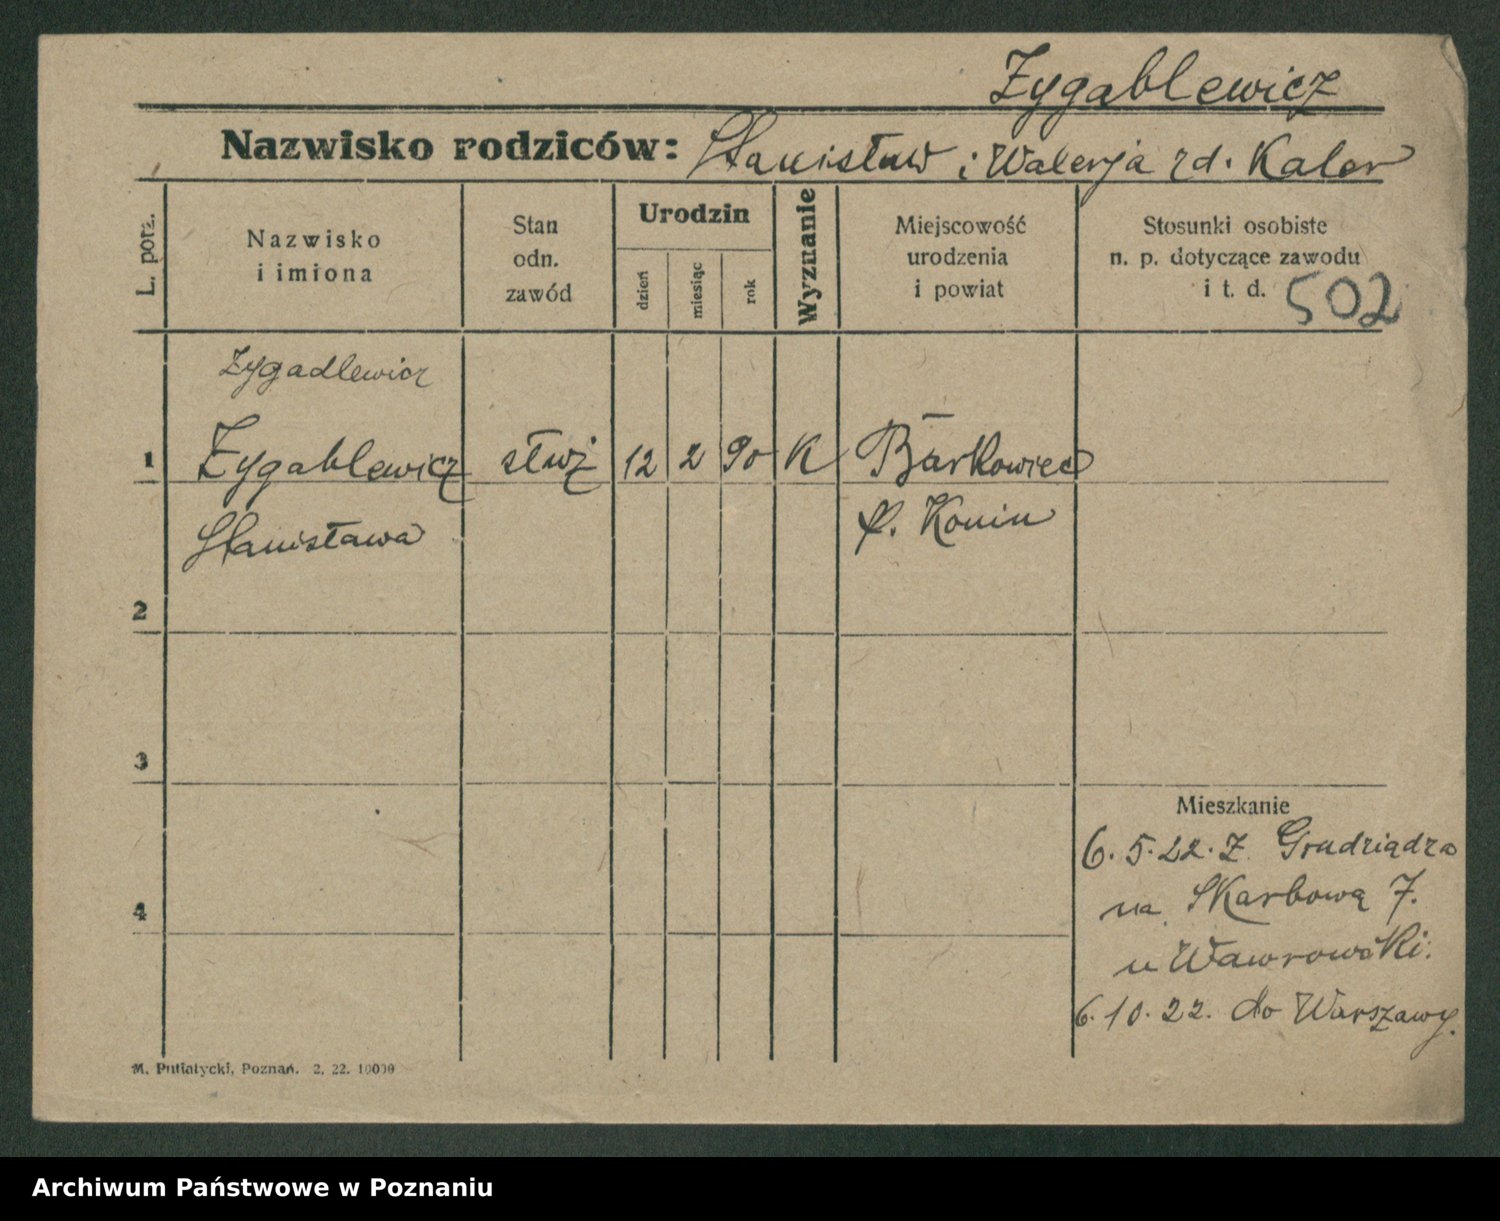 Zygablewicz
Nazwisko rodziców: Stanisław i Walerja rd. Kaler
L. porz.
Nazwisko
i imiona
Stan
odn.
zawód
Urodzin
dzień
miesiąc
rok
Wyznanie
Miejscowość
urodzenia
i powiat
Stosunki osobiste
n. p. dotyczące zawodu
i t. d. 502
Zygadlewicz
1 Zygablewicz służ 12 2 90 K Barkowiec
Stanisława p. Konin
2
3
4
Mieszkanie
6. 5. 22. Z Grudziądza
na Skarbową 7.
u Wawrowski.
6. 10. 22. do Warszawy.
M. Putiatycki, Poznań. 2. 22. 10000
Archiwum Państwowe w Poznaniu